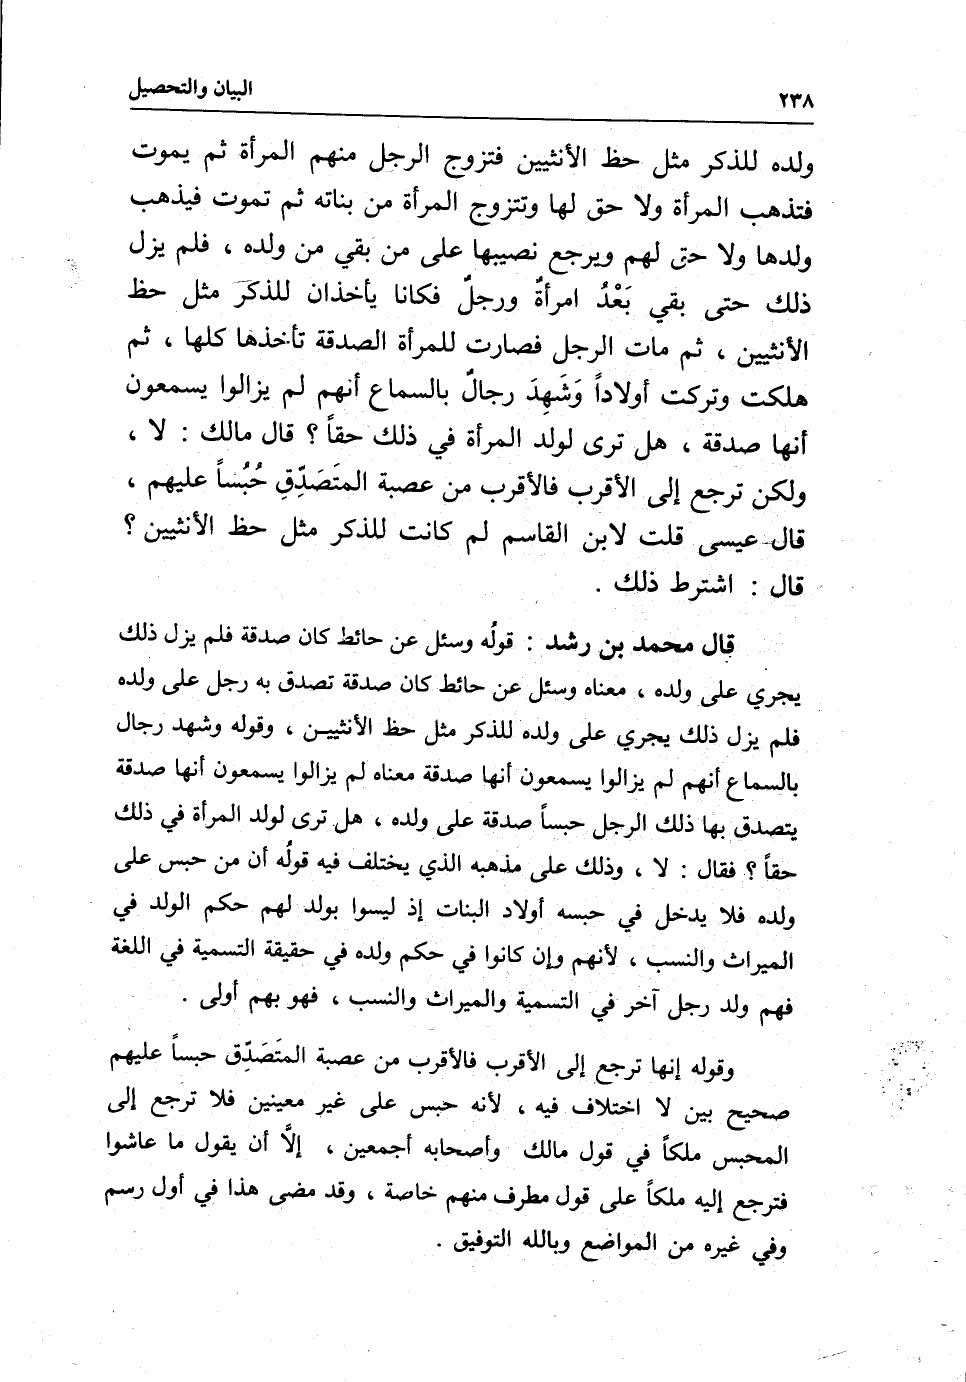 ٢٣٨
البيان والتحصيل
ولده للذكر مثل حظ الأنثيين فتزوج الرجل منهم المرأة ثم يموت
فتذهب المرأة ولا حق لها وتتزوج المرأة من بناته ثم تموت فيذهب
ولدها ولا حق لهم ويرجع نصيبها على من بقي من ولده ، فلم يزل
ذلك حتى بقي بَعْدُ امرأةٌ ورجلٌ فكانا يأخذان للذكر مثل حظ
الأنثيين ، ثم مات الرجل فصارت للمرأة الصدقة تأخذها كلها ، ثم
هلكت وتركت أولاداً وَشَهِدَ رجالٌ بالسماع أنهم لم يزالوا يسمعون
أنها صدقة ، هل ترى لولد المرأة في ذلك حقاً ؟ قال مالك : لا ،
ولكن ترجع إلى الأقرب فالأقرب من عصبة المتَصَدِّقِ حُبُساً عليهم ،
قال عيسى قلت لابن القاسم لم كانت للذكر مثل حظ الأنثيين ؟
قال : اشترط ذلك .
قال محمد بن رشد : قولُه وسئل عن حائط كان صدقة فلم يزل ذلك
يجري على ولده ، معناه وسئل عن حائط كان صدقة تصدق به رجل على ولده
فلم يزل ذلك يجري على ولده للذكر مثل حظ الأنثيين ، وقوله وشهد رجال
بالسماع أنهم لم يزالوا يسمعون أنها صدقة معناه لم يزالوا يسمعون أنها صدقة
يتصدق بها ذلك الرجل حبساً صدقة على ولده ، هل ترى لولد المرأة في ذلك
حقاً ؟ فقال : لا ، وذلك على مذهبه الذي يختلف فيه قولُه أن من حبس على
ولده فلا يدخل في حبسه أولاد البنات إذ ليسوا بولد لهم حكم الولد في
الميراث والنسب ، لأنهم وإن كانوا في حكم ولده في حقيقة التسمية في اللغة
فهم ولد رجل آخر في التسمية والميراث والنسب ، فهو بهم أولى .
وقوله إنها ترجع إلى الأقرب فالأقرب من عصبة المتَصَدِّق حبساً عليهم
صحيح بين لا اختلاف فيه ، لأنه حبس على غير معينين فلا ترجع إلى
المحبس ملكاً في قول مالك وأصحابه أجمعين ، إلَّا أن يقول ما عاشوا
فترجع إليه ملكاً على قول مطرف منهم خاصة ، وقد مضى هذا في أول رسم
وفي غيره من المواضع وبالله التوفيق .